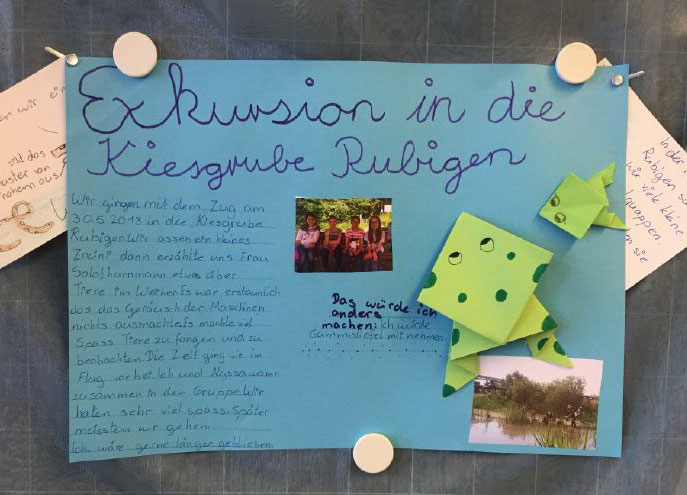 Exkursion in die
Kiesgrube Rubigen
Wir gingen mit dem Zug am
30.5.2018 in die Kiesgrube
Rubigen Wir assen ein kleines
Znüni dann erzählte uns Frau
Solothurnmann etwas über
Tiere im Weiher Es war erstaunlich
das das Geräusch der Maschinen
nichts ausmachte Es machte viel
Spass Tiere zu fangen und zu
beobachten. Die Zeit ging wie im
Flug vorbei. Ich und waren
zusammen in der Gruppe. Wir
haten sehr viel spass. Später
meissten wir gehen
Ich wäre gerne länger geblieben.
Das würde ich
anders
machen: Ich würde
Gummistiefel mit nehmen
en wir ein
mit das
uster von
In der
Rubigen s
wir viele kleine
quappen.
en sie